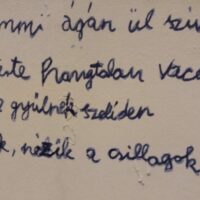 mmi ágán ül szi
ste hangtalan vac
gyűlnek szeliden
k, nézik a csillagok